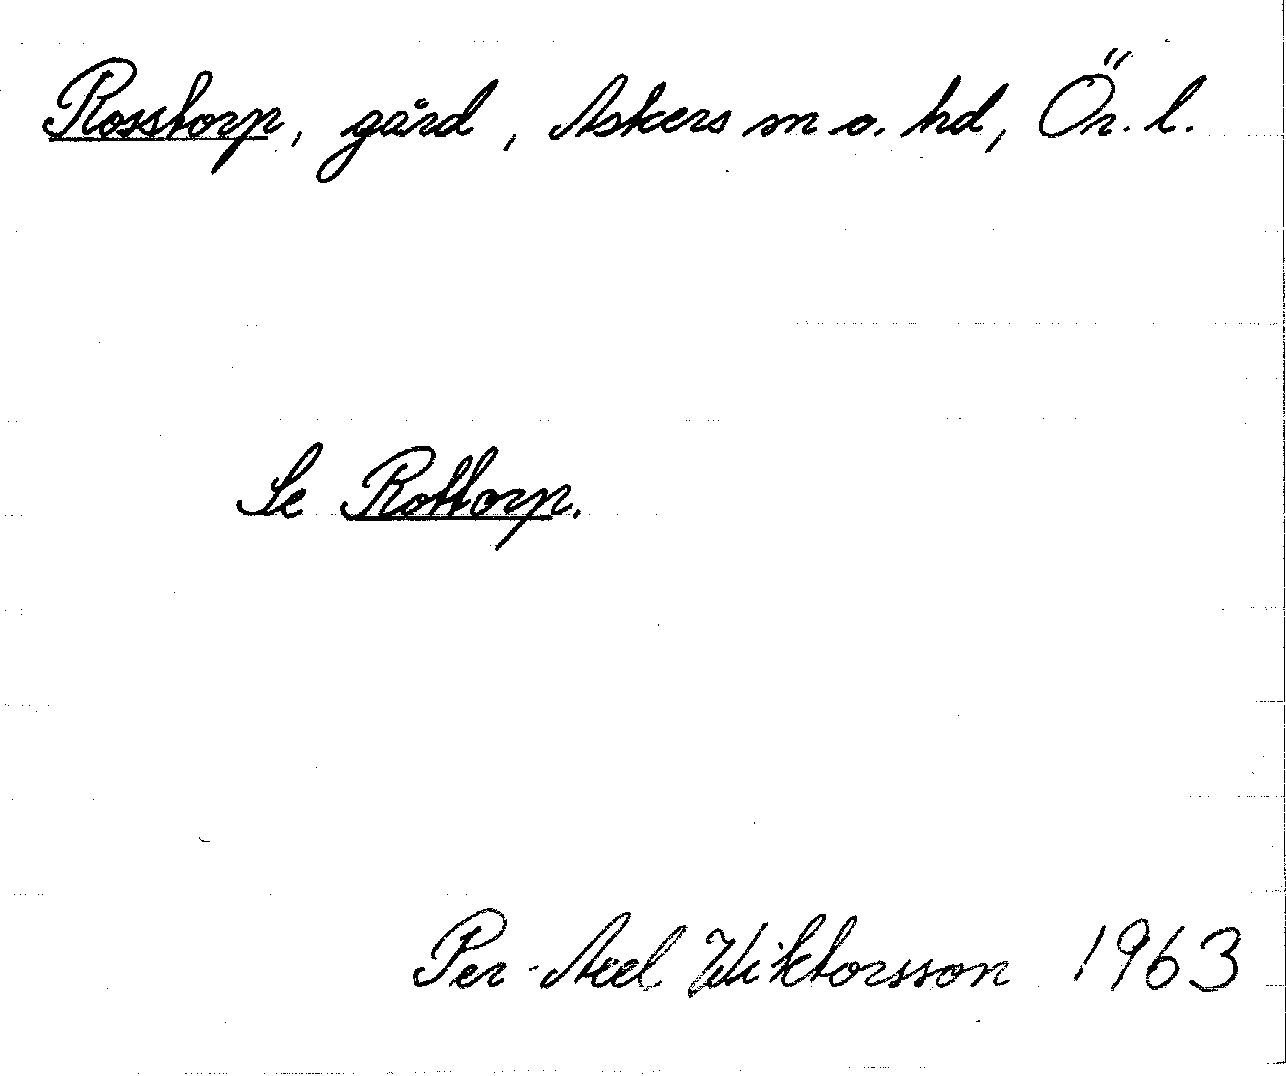 Rosstorp, gård, Askers sn o. hd, Ör. l.
Se Rottorp.
Per-Axel Wiktorsson 1963